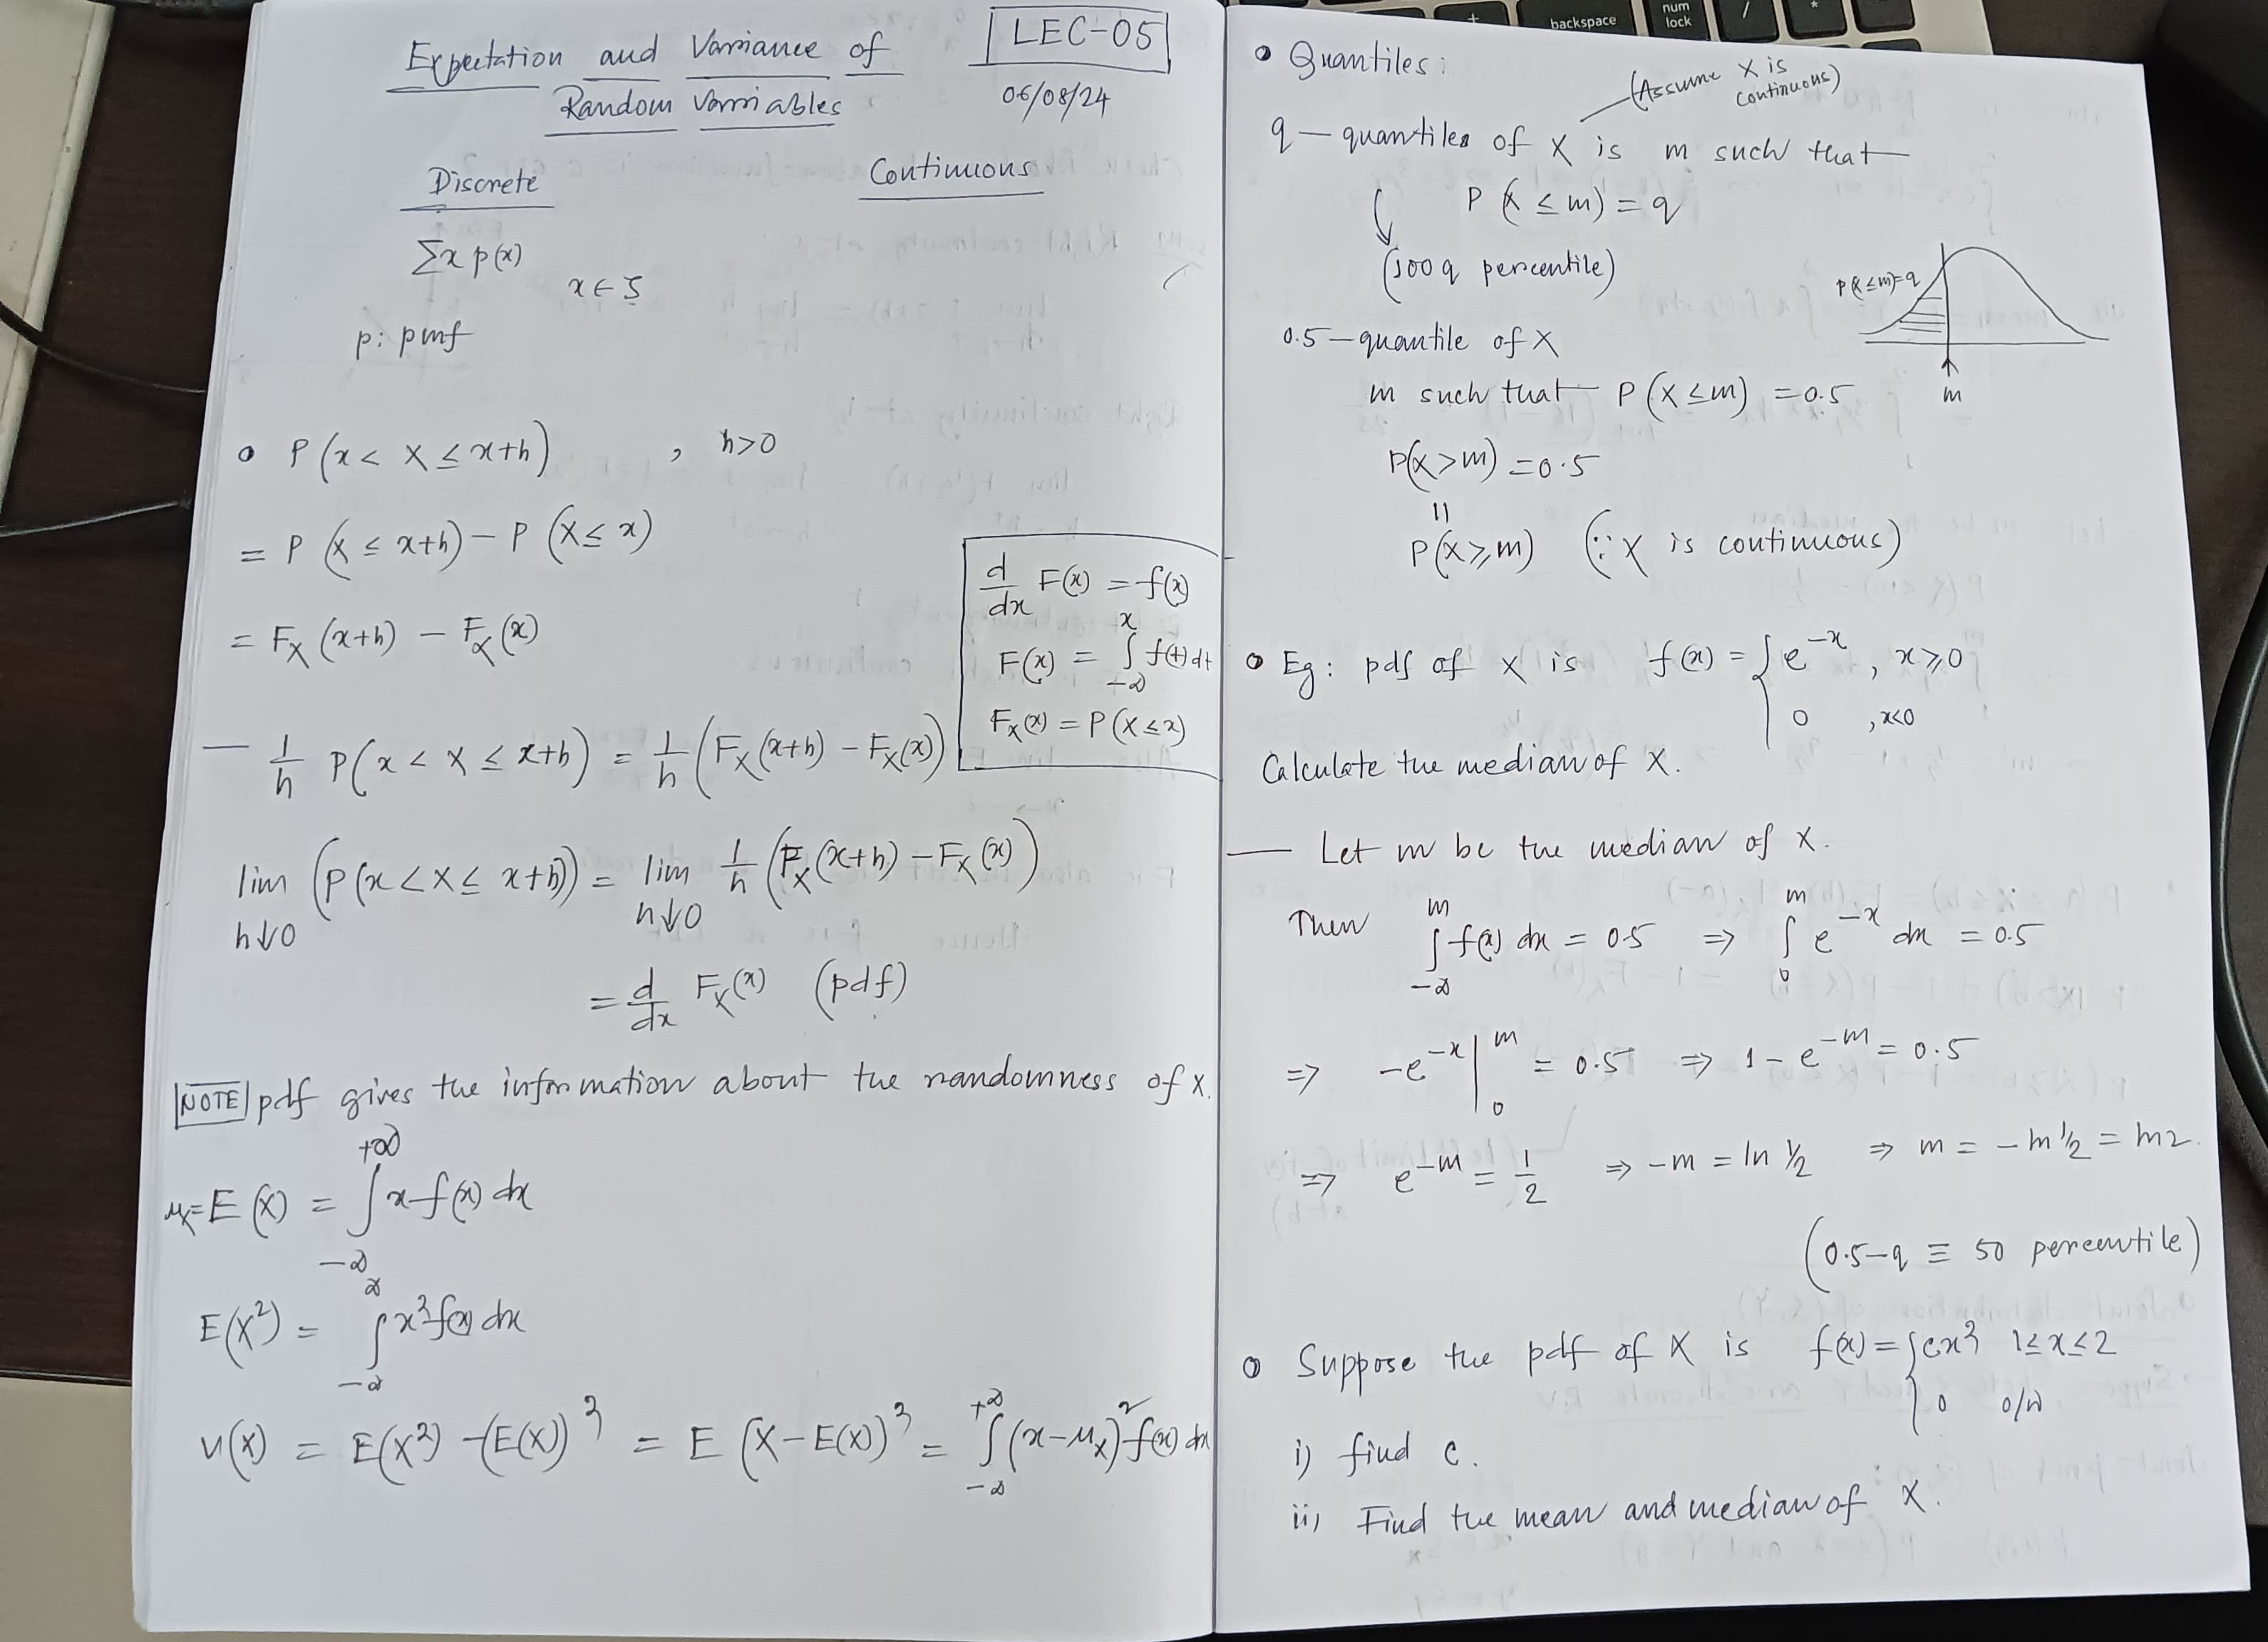 Expectation and Variance of
Random Variables
LEC-05
06/08/24
Discrete
Continuous
Σx p(x)
x ∈ S
p: pmf
• P(x < X ≤ x+h) , h>0
= P(X ≤ x+h) - P(X ≤ x)
= F_X(x+h) - F_X(x)
d/dx F(x) = f(x)
F(x) = ∫_{-∞}^{x} f(t) dt
F_X(x) = P(X ≤ x)
— 1/h P(x < X ≤ x+h) = 1/h (F_X(x+h) - F_X(x))
lim_{h↓0} (P(x < X ≤ x+h)) = lim_{h↓0} 1/h (F_X(x+h) - F_X(x))
= d/dx F_X(x) (pdf)
NOTE pdf gives the information about the randomness of X.
μ_X = E(X) = ∫_{-∞}^{+∞} x f(x) dx
E(X²) = ∫_{-∞}^{∞} x² f(x) dx
V(X) = E(X²) - (E(X))² = E(X - E(X))² = ∫_{-∞}^{+∞} (x - μ_X)² f(x) dx
• Quantiles:
(Assume X is
continuous)
q — quantiles of X is m such that
P(X ≤ m) = q
(100q percentile)
P(X ≤ m) = q
m
0.5 — quantile of X
m such that P(X ≤ m) = 0.5
P(X > m) = 0.5
||
P(X ≥ m) (∵ X is continuous)
• Eg: pdf of X is f(x) = { e^{-x} , x ≥ 0
0 , x<0
Calculate the median of X.
— Let m be the median of X.
Then ∫_{-∞}^{m} f(x) dx = 0.5 ⇒ ∫_{0}^{m} e^{-x} dx = 0.5
⇒ -e^{-x} |_{0}^{m} = 0.5 ⇒ 1 - e^{-m} = 0.5
⇒ e^{-m} = 1/2 ⇒ -m = ln 1/2 ⇒ m = -ln 1/2 = ln 2.
(0.5-q ≡ 50 percentile)
• Suppose the pdf of X is f(x) = { cx² 1 ≤ x ≤ 2
0 o/w
i) find c.
ii) Find the mean and median of X.